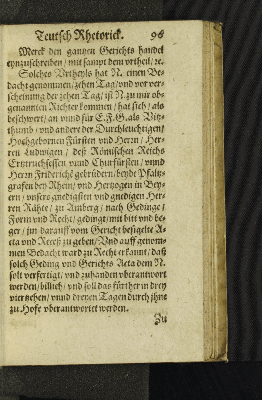 Teutsch Rhetorick. 96
Merck den gantzen Gerichts handel
eynzuschreiben / mit sampt dem vrtheil / ꝛc.
Solches Vrtheyls hat N. einen Be-
dacht genommen / zehen Tag / vnd vor ver-
scheinung der zehen Tag / ist N. zu mir ob-
genannten Richter kommen / hat sich / als
beschwert / an vnnd für E. F. G. als Vitz-
thumb / vnd andere der Durchleuchtigen /
Hochgebornen Fürsten vnd Herrn / Her-
ren Ludwigen / deß Römischen Reichs
Ertztruchsessen vnnd Churfürsten / vnnd
Herrn Friderichē gebrüdern / beyde Pfaltz-
grafen bey Rhein / vnd Hertzogen in Bey-
ern / vnsers gnedigsten vnd gnedigen Her-
ren Rähte / zu Amberg / nach Gedings /
Form vnd Recht / gedingt / mit bitt vnd be-
ger / jm darauff vom Gericht besigelte A-
cta vnd Receß zu geben / Vnd auff genom-
men Bedacht ward zu Recht erkannt / daß
solch Geding vnd Gerichts Acta dem N.
solt verfertigt / vnd zuhanden vberantwort
werden / billich / vnd soll das fürther in drey
viertzehen / vnnd dreyen Tagen durch jhne
zu Hofe vberantwortet werden.
Zu